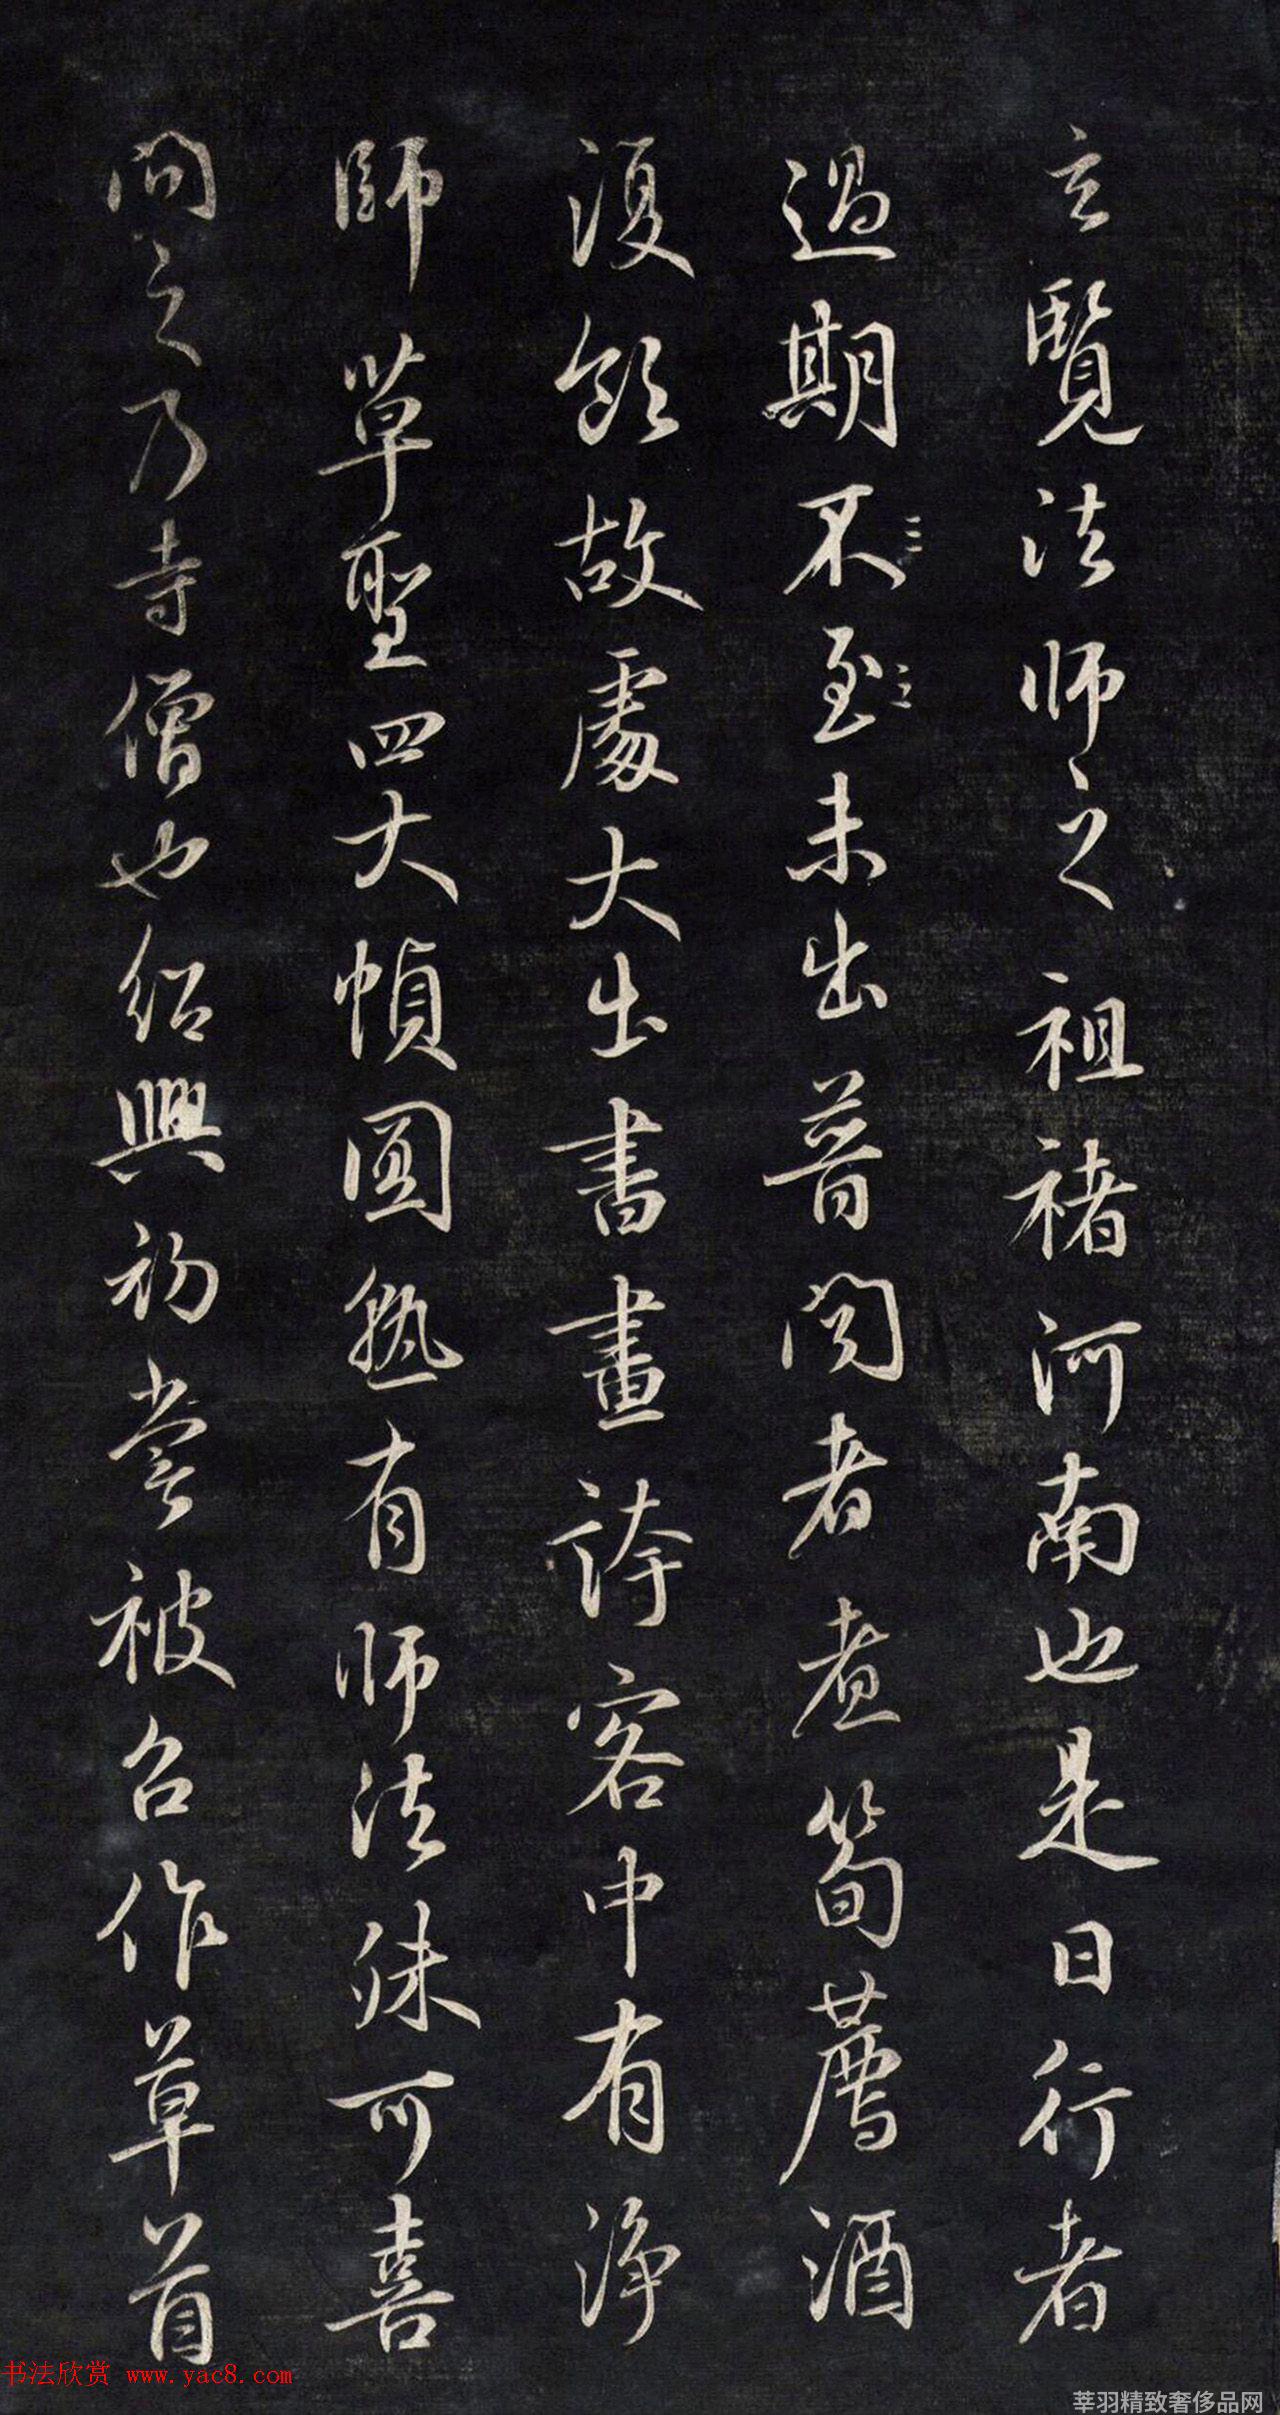 玄覽法師之祖褚河南也是日行者
過期不至未出普閱者煮筍薦酒
復飲故處大出書畫誇客中有淨
師草聖四大幀圓熟有师法殊可喜
问之乃寺僧也紹興初嘗被召作草首
书法欣赏 www.yac8.com
莘羽精致奢侈品网